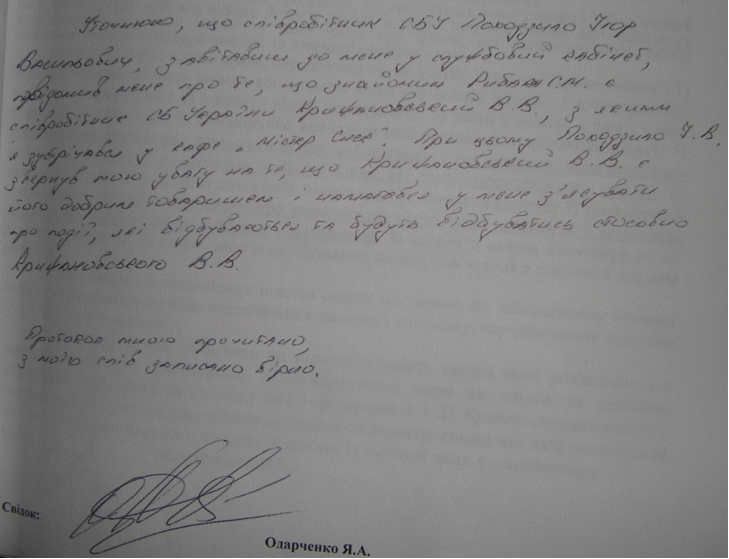 Уточнюю, що співробітник СБУ Походзило Ігор
Васильович, завітавши до мене у службовий кабінет,
повідомив мене про те, що знайомим Рибак С.М. є
співробітник СБ України Крижановський В.В., з яким
я зустрічався у кафе „Містер Снек". При цьому Походзило І.В.
звернув мою увагу на те, що Крижановський В.В. є
його добрим товаришем і намагався у мене з'ясувати
про події, які відбуваються та будуть відбуватись стосовно
Крижановського В.В.
Протокол мною прочитано,
з моїх слів записано вірно.
Свідок:
Одарченко Я.А.